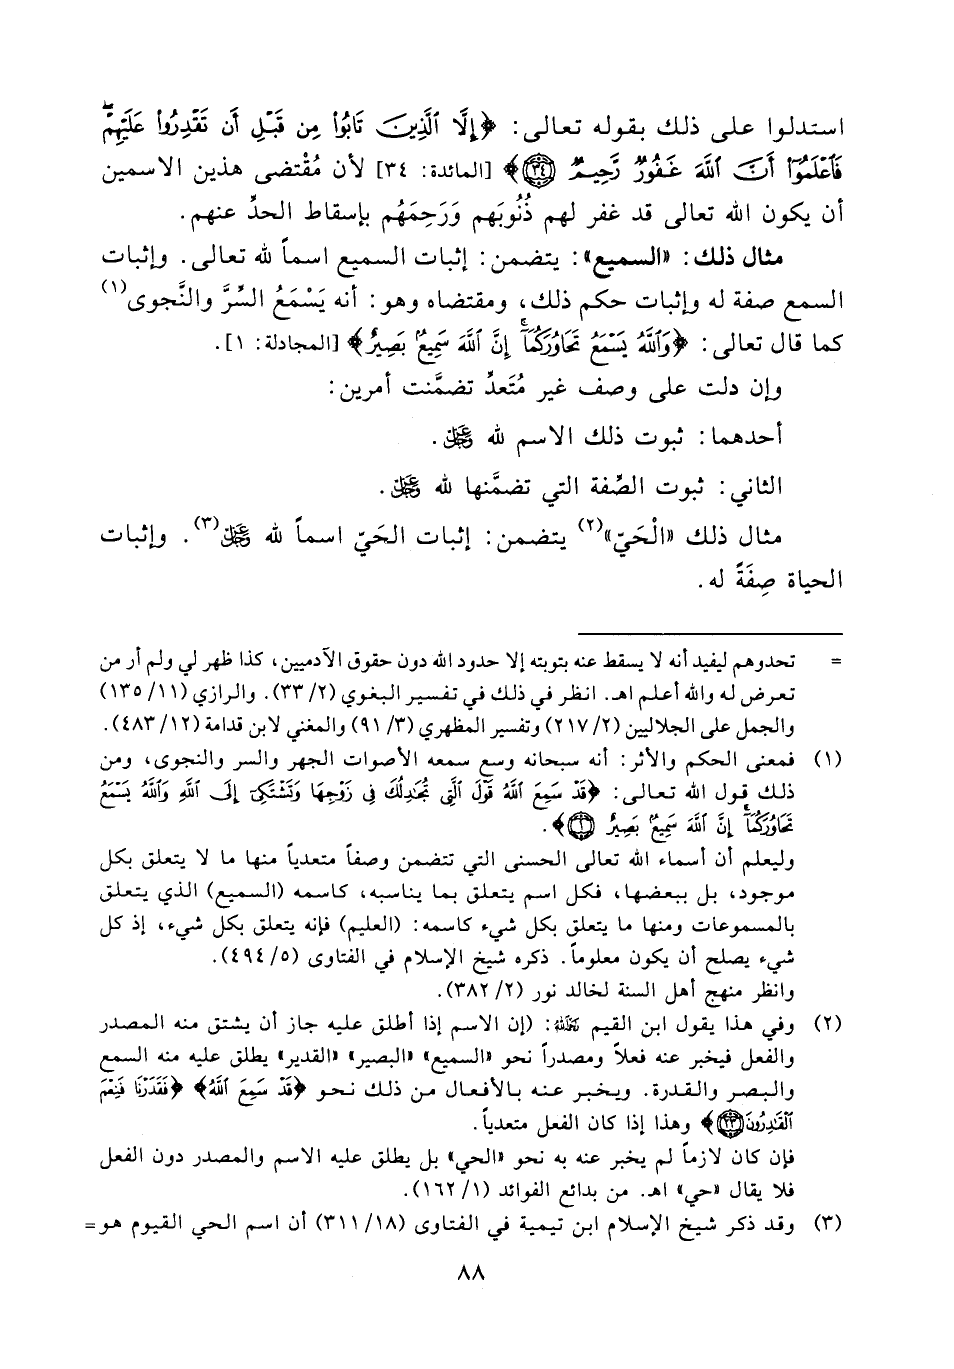 استدلوا على ذلك بقوله تعالى: ﴿إِلَّا ٱلَّذِينَ تَابُوا۟ مِن قَبْلِ أَن تَقْدِرُوا۟ عَلَيْهِمْ ۖ
فَٱعْلَمُوٓا۟ أَنَّ ٱللَّهَ غَفُورٌ رَّحِيمٌ ۝٣٤﴾ [المائدة: ٣٤] لأن مُقْتضى هذين الاسمين
أن يكون الله تعالى قد غفر لهم ذُنُوبَهم وَرَحِمَهُم بإسقاط الحدِّ عنهم.
مثال ذلك: «السميع»: يتضمن: إثبات السميع اسماً لله تعالى. وإثبات
السمع صفة له وإثبات حكم ذلك، ومقتضاه وهو: أنه يَسْمَعُ السِّرَّ والنَّجوى(١)
كما قال تعالى: ﴿وَٱللَّهُ يَسْمَعُ تَحَاوُرَكُمَآ ۚ إِنَّ ٱللَّهَ سَمِيعٌۢ بَصِيرٌ﴾ [المجادلة: ١].
وإن دلت على وصف غير مُتَعدٍّ تضمَّنت أمرين:
أحدهما: ثبوت ذلك الاسم لله عز وجل.
الثاني: ثبوت الصِّفة التي تضمَّنها لله عز وجل.
مثال ذلك «الْحَيّ»(٢) يتضمن: إثبات الحَيّ اسماً لله عز وجل(٣). وإثبات
الحياة صِفَةً له.
= تحدوهم ليفيد أنه لا يسقط عنه بتوبته إلا حدود الله دون حقوق الآدميين، كذا ظهر لي ولم أر من
تعرض له والله أعلم اهـ. انظر في ذلك في تفسير البغوي (٢/ ٣٣). والرازي (١١/ ١٣٥)
والجمل على الجلالين (٢/ ٢١٧) وتفسير المظهري (٣/ ٩١) والمغني لابن قدامة (١٢/ ٤٨٣).
(١) فمعنى الحكم والأثر: أنه سبحانه وسع سمعه الأصوات الجهر والسر والنجوى، ومن
ذلك قول الله تعالى: ﴿قَدْ سَمِعَ ٱللَّهُ قَوْلَ ٱلَّتِى تُجَٰدِلُكَ فِى زَوْجِهَا وَتَشْتَكِىٓ إِلَى ٱللَّهِ وَٱللَّهُ يَسْمَعُ
تَحَاوُرَكُمَآ ۚ إِنَّ ٱللَّهَ سَمِيعٌۢ بَصِيرٌ ۝١﴾.
وليعلم أن أسماء الله تعالى الحسنى التي تتضمن وصفاً متعدياً منها ما لا يتعلق بكل
موجود، بل ببعضها، فكل اسم يتعلق بما يناسبه، كاسمه (السميع) الذي يتعلق
بالمسموعات ومنها ما يتعلق بكل شيء كاسمه: (العليم) فإنه يتعلق بكل شيء، إذ كل
شيء يصلح أن يكون معلوماً. ذكره شيخ الإسلام في الفتاوى (٥/ ٤٩٤).
وانظر منهج أهل السنة لخالد نور (٢/ ٣٨٢).
(٢) وفي هذا يقول ابن القيم رحمه الله: (إن الاسم إذا أطلق عليه جاز أن يشتق منه المصدر
والفعل فيخبر عنه فعلاً ومصدراً نحو «السميع» «البصير» «القدير» يطلق عليه منه السمع
والبصر والقدرة. ويخبر عنه بالأفعال من ذلك نحو ﴿قَدْ سَمِعَ ٱللَّهُ﴾ ﴿فَقَدَرْنَا فَنِعْمَ
ٱلْقَٰدِرُونَ ۝٢٣﴾ وهذا إذا كان الفعل متعدياً.
فإن كان لازماً لم يخبر عنه به نحو «الحي» بل يطلق عليه الاسم والمصدر دون الفعل
فلا يقال «حي» اهـ. من بدائع الفوائد (١/ ١٦٢).
(٣) وقد ذكر شيخ الإسلام ابن تيمية في الفتاوى (١٨/ ٣١١) أن اسم الحي القيوم هو=
٨٨